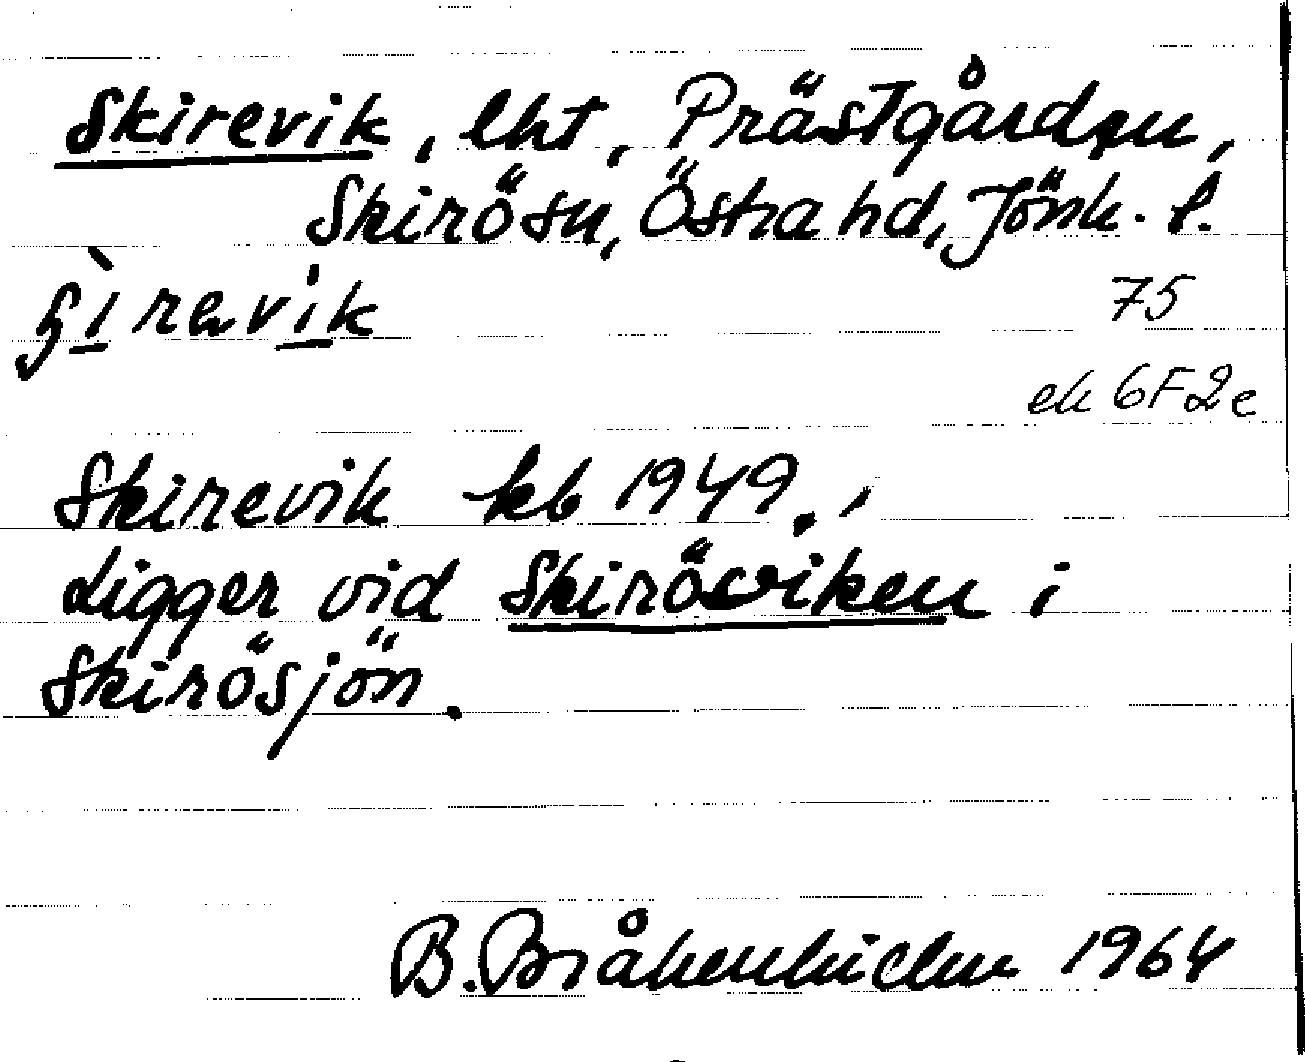 Skirevik, lht, Prästgården,
Skirö sn, Östra hd, Jönk. l.
ʃìrəvik
75
ek 6F2e
Skirevik kb 1949.
Ligger vid Skiröviken i
Skirösjön.
B. 1964